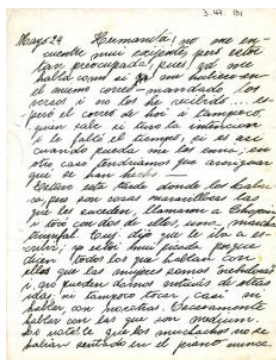 3. 47. 131
Mayo 24 Hermanita! no me en-
cuentre mui exijente, pero estoi
tan preocupada, pues ud me
habla como si me hubiesen en
el mismo correo mandado los
versos i no los he recibido.... es-
peré el correo de hoi i tampoco,
quien sabe si tuvo la intencion
i le faltó el tiempo, si es así
cuando pueda me los envia, en
otro caso tendríamos que averiguar
qué se han hecho. —
Estuve esta tarde donde los
pero son cosas maravillosas las
que les suceden, llamaron a Chopin
i tocó con dos de ellos una marcha
triunfal. Cruz dijo que él iba a es-
cribir; yo estoi mui picada porque
dicen todos los que hablan con
ellos que las mujeres somos
i no pueden darnos noticias de otras
vidas, ni tampoco tocar, casi ni
hablar, con nosotras. Unicamente
hablar con las que son mediums.
que los muchachos no se
habian sentado en el piano nunca